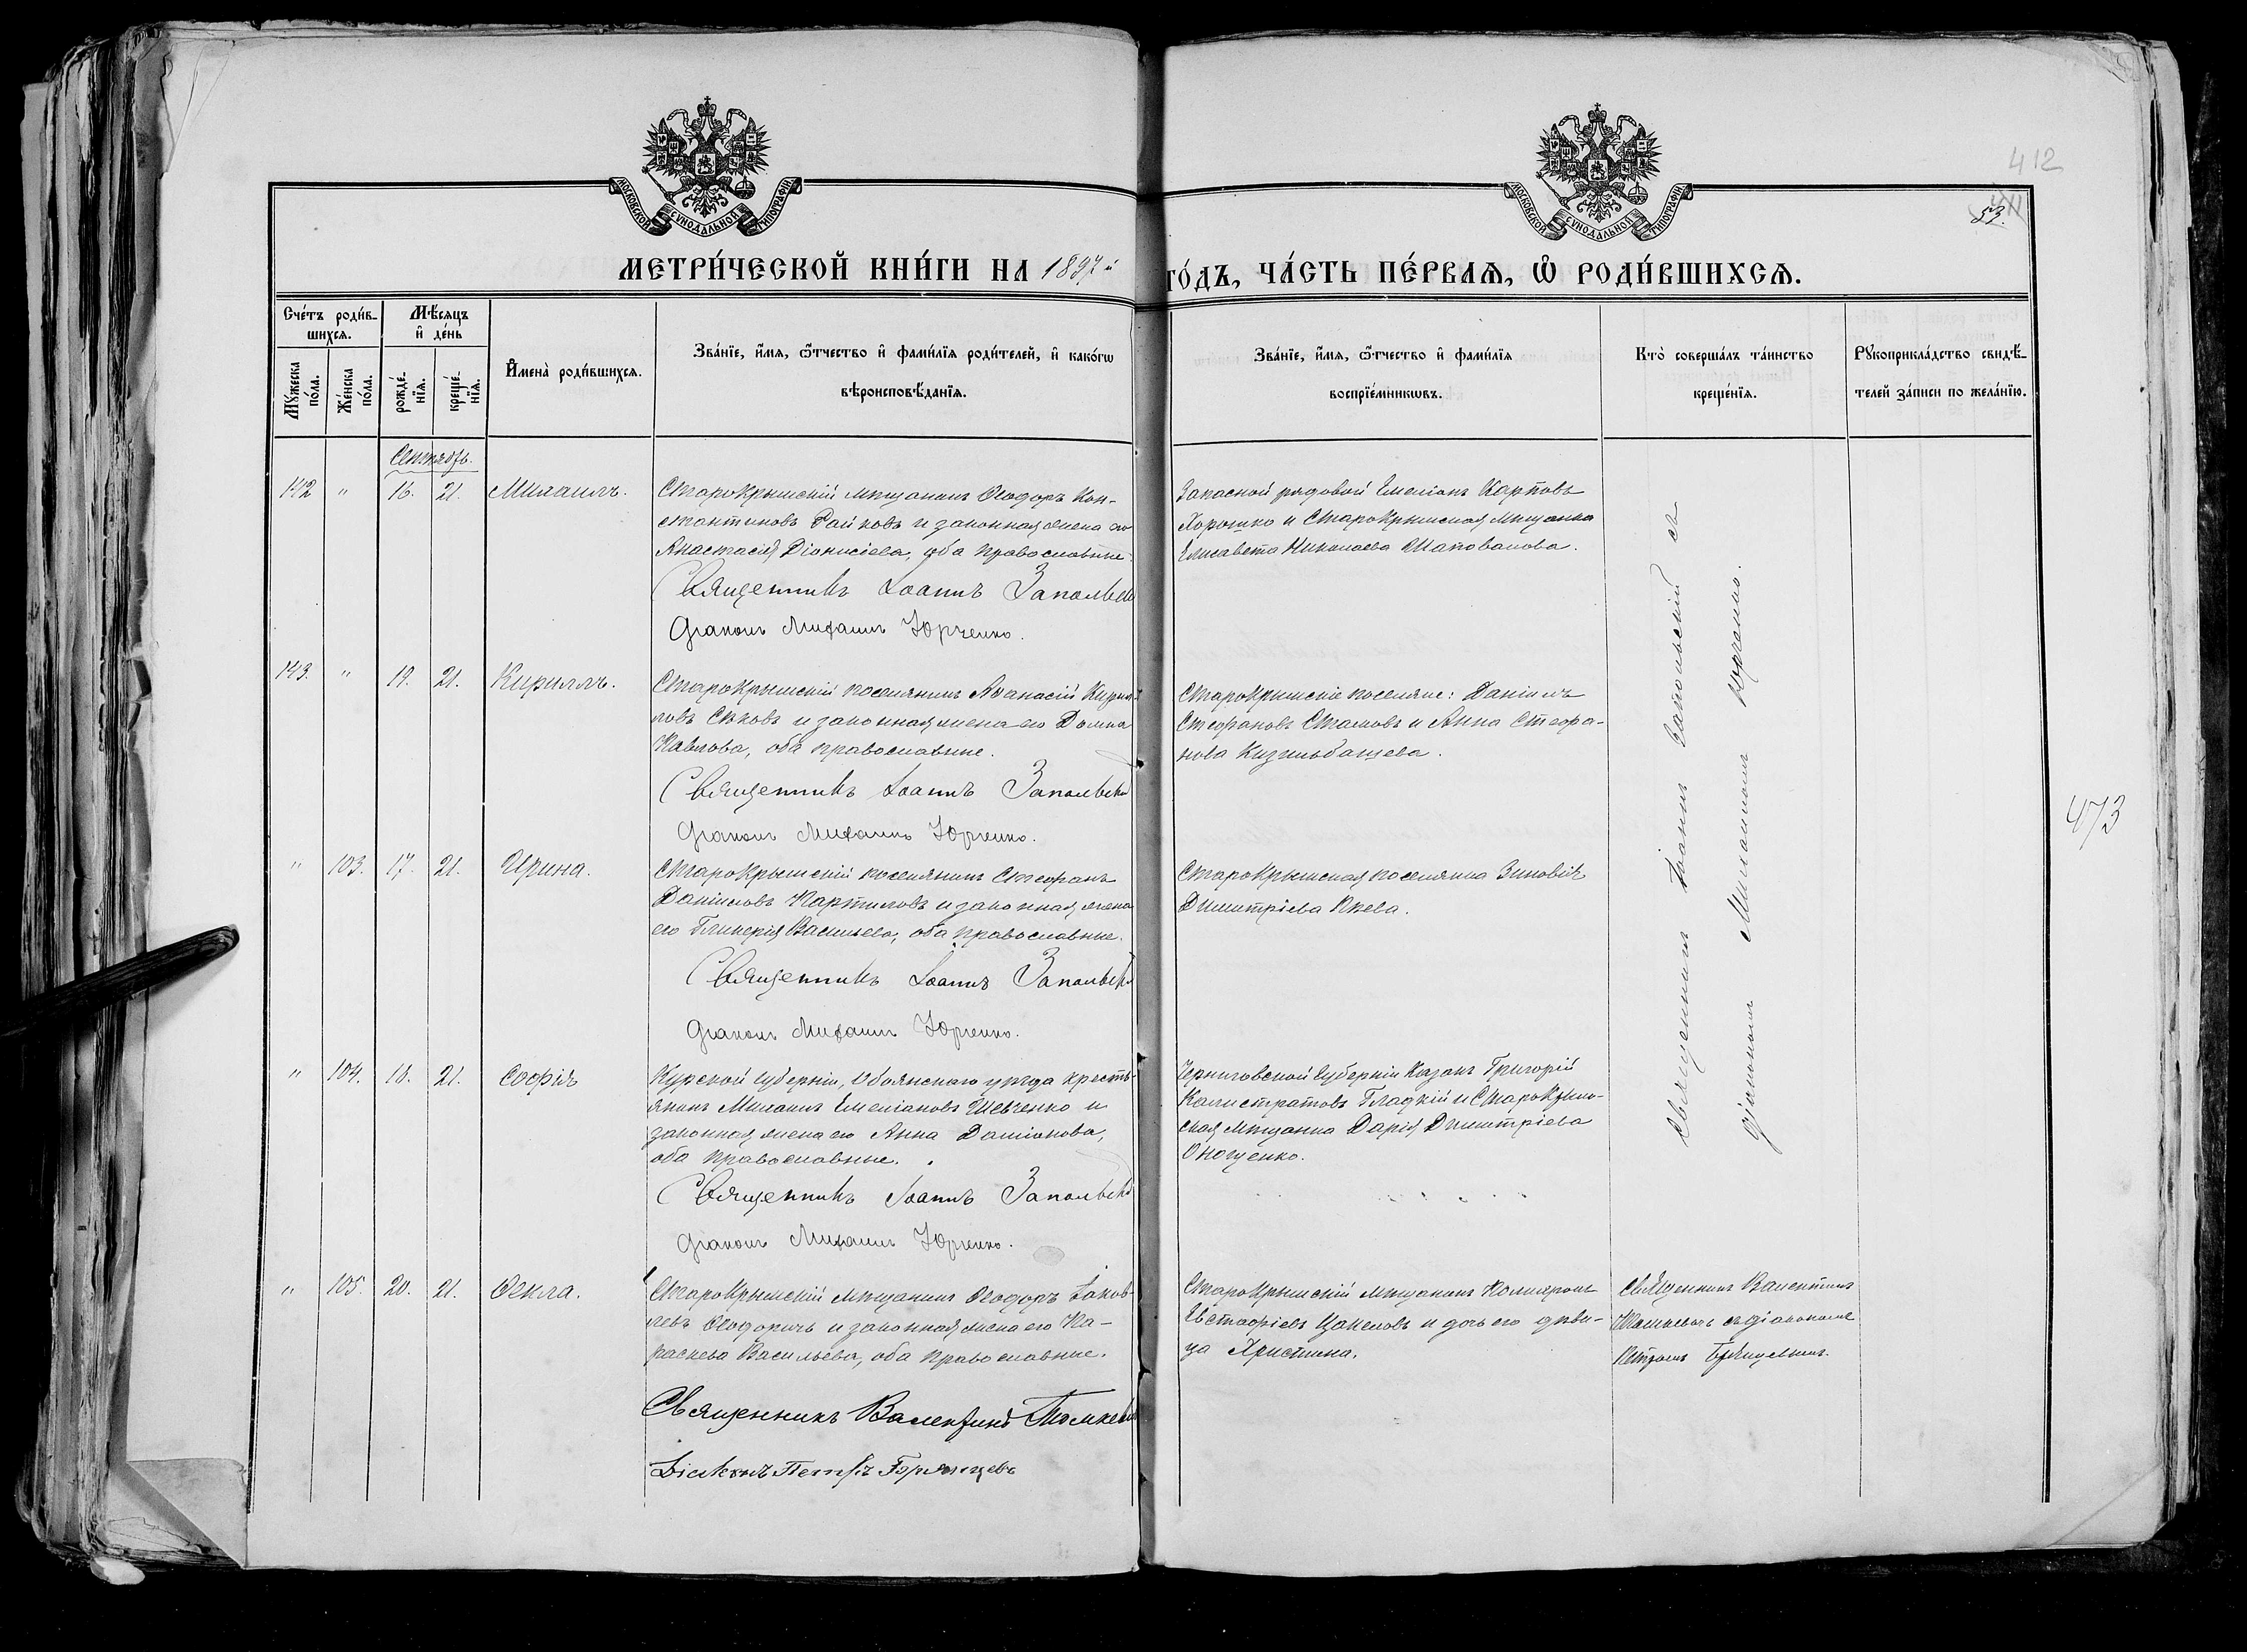 МОСКОВСКОЙ СѴНОДАЛЬНОЙ ТИПОГРАФІИ
МОСКОВСКОЙ СѴНОДАЛЬНОЙ ТИПОГРАФІИ
412
411
53.
МЕТРИ́ЧЕСКОЙ КНИ́ГИ НА 1897й
ГО́ДЪ, ЧА́СТЬ ПЕ́РВАѦ, Ѡ҆ РОДИ́ВШИХСѦ.
Сче́тъ роди́в-
шихсѧ.
Мꙋ́жеска по́ла.
Же́нска по́ла.
Мѣ́сѧцъ
и҆ де́нь
рожде́-
нїѧ.
креще́-
нїѧ.
И҆мена̀ роди́вшихсѧ.
Зва́нїе, и҆́мѧ, ѻ҆́тчество и҆ фами́лїѧ роди́телей, и҆ како́гѡ
вѣроисповѣ́данїѧ.
Зва́нїе, и҆́мѧ, ѻ҆́тчество и҆ фами́лїѧ
воспрїе́мникѡвъ.
Кто̀ соверша́лъ та́инство
креще́нїѧ.
Рꙋкоприкла́дство свидѣ́-
телей за́писи по жела́нїю.
Сентябрь.
142 " 16. 21. Михаилъ.
Старокрымскій мѣщанинъ Ѳеодоръ Кон-
стантиновъ Райковъ и законная жена его
Анастасія Діонисіева, оба православные.
Священникъ Іоаннъ Запольскі
Діаконъ Михаилъ Юрченко.
Запасной рядовой Емеліанъ Карповъ
Хорошко и Старокрымская мѣщанка
Елисавета Николаева Шаповалова.
Священникъ Іоаннъ Запольскій съ
діакономъ Михаиломъ Юрченко.
143. " 19. 21. Кириллъ.
Старокрымскій поселянинъ Аѳанасій Кирил-
ловъ Сѣковъ и законная жена его Домна
Павлова, оба православные.
Священникъ Іоаннъ Запольскі
Діаконъ Михаилъ Юрченко.
Старокрымскіе поселяне: Даніилъ
Стефановъ Стамовъ и Анна Стефа-
нова Кизильбашева.
473
" 103. 17. 21. Ирина.
Старокрымскій поселянинъ Стефанъ
Даніиловъ Картиловъ и законная жена
его Гликерія Васильева, оба православные.
Священникъ Іоаннъ Запольскі
Діаконъ Михаилъ Юрченко.
Старокрымская поселянка Зиновія
Димитріева
" 104. 18. 21. Софія
Курской губерніи, Обоянскаго уѣзда кресть-
янинъ Михаилъ Емеліановъ Шевченко и
законная жена его Анна Даміанова,
оба православные.
Священникъ Іоаннъ Запольскі
Діаконъ Михаилъ Юрченко.
Черниговской губерніи Казакъ Григорій
Калистратовъ Гладкій и Старокрым-
ская мѣщанка Дарія Димитріева
Онощенко.
" 105. 20. 21. Ѳекла.
Старокрымскій мѣщанинъ Ѳеодоръ Іаков-
левъ Ѳеодоричъ и законная жена его Па-
раскева Васильева, оба православные.
Священникъ Валентинъ Томкеви
Діаконъ Петръ Брянцевъ
Старокрымскій мѣщанинъ
Евстафіевъ Цакеловъ и дочь его дѣви-
ца Христина.
Священникъ Валентинъ
Томкевичъ съ діакономъ
Петромъ Брянцевымъ.